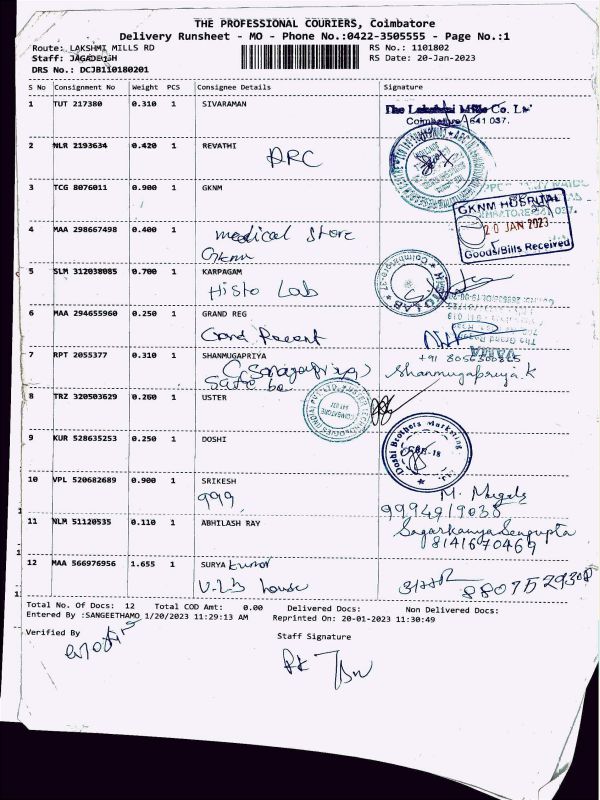 THE PROFESSIONAL COURIERS, Coimbatore
Delivery Runsheet - MO - Phone No.:0422-3505555 - Page No.:1
Route: LAKSHMI MILLS RD RS No.: 1101802
Staff: JAGADEESH RS Date: 20-Jan-2023
DRS No.: DCJB110180201
S No Consignment No Weight PCS Consignee Details Signature
1 TUT 217380 0.310 1 SIVARAMAN
The Lakshmi Mills Co. Lt
Coimbatore 641 037.
2 NLR 2193634 0.420 1 REVATHI
ARC
3 TCG 8076011 0.900 1 GKNM
GKNM HOSPITAL
20 JAN 2023
Goods/Bills Received
4 MAA 298667498 0.400 1 medical store
Gknm
5 SLM 312038085 0.700 1 KARPAGAM
Histo Lab
HISTO LAB
Coimbatore-37
6 MAA 294655960 0.250 1 GRAND REG
Grand Regent
7 RPT 2055377 0.310 1 SHANMUGAPRIYA
+91 8056300825
Shanmugapriya.K
8 TRZ 320503629 0.260 1 USTER
9 KUR 528635253 0.250 1 DOSHI
Doshi Brothers Marketing
CBE-18
10 VPL 520682689 0.900 1 SRIKESH
999
9994919038
11 NLM 51120535 0.110 1 ABHILASH RAY
Sagarkanya Sengupta
8141670469
12 MAA 566976956 1.655 1 SURYA kumar
U.L.B house
Total No. Of Docs: 12 Total COD Amt: 0.00 Delivered Docs: Non Delivered Docs:
Entered By :SANGEETHAMO 1/20/2023 11:29:13 AM Reprinted On: 20-01-2023 11:30:49
Verified By Staff Signature